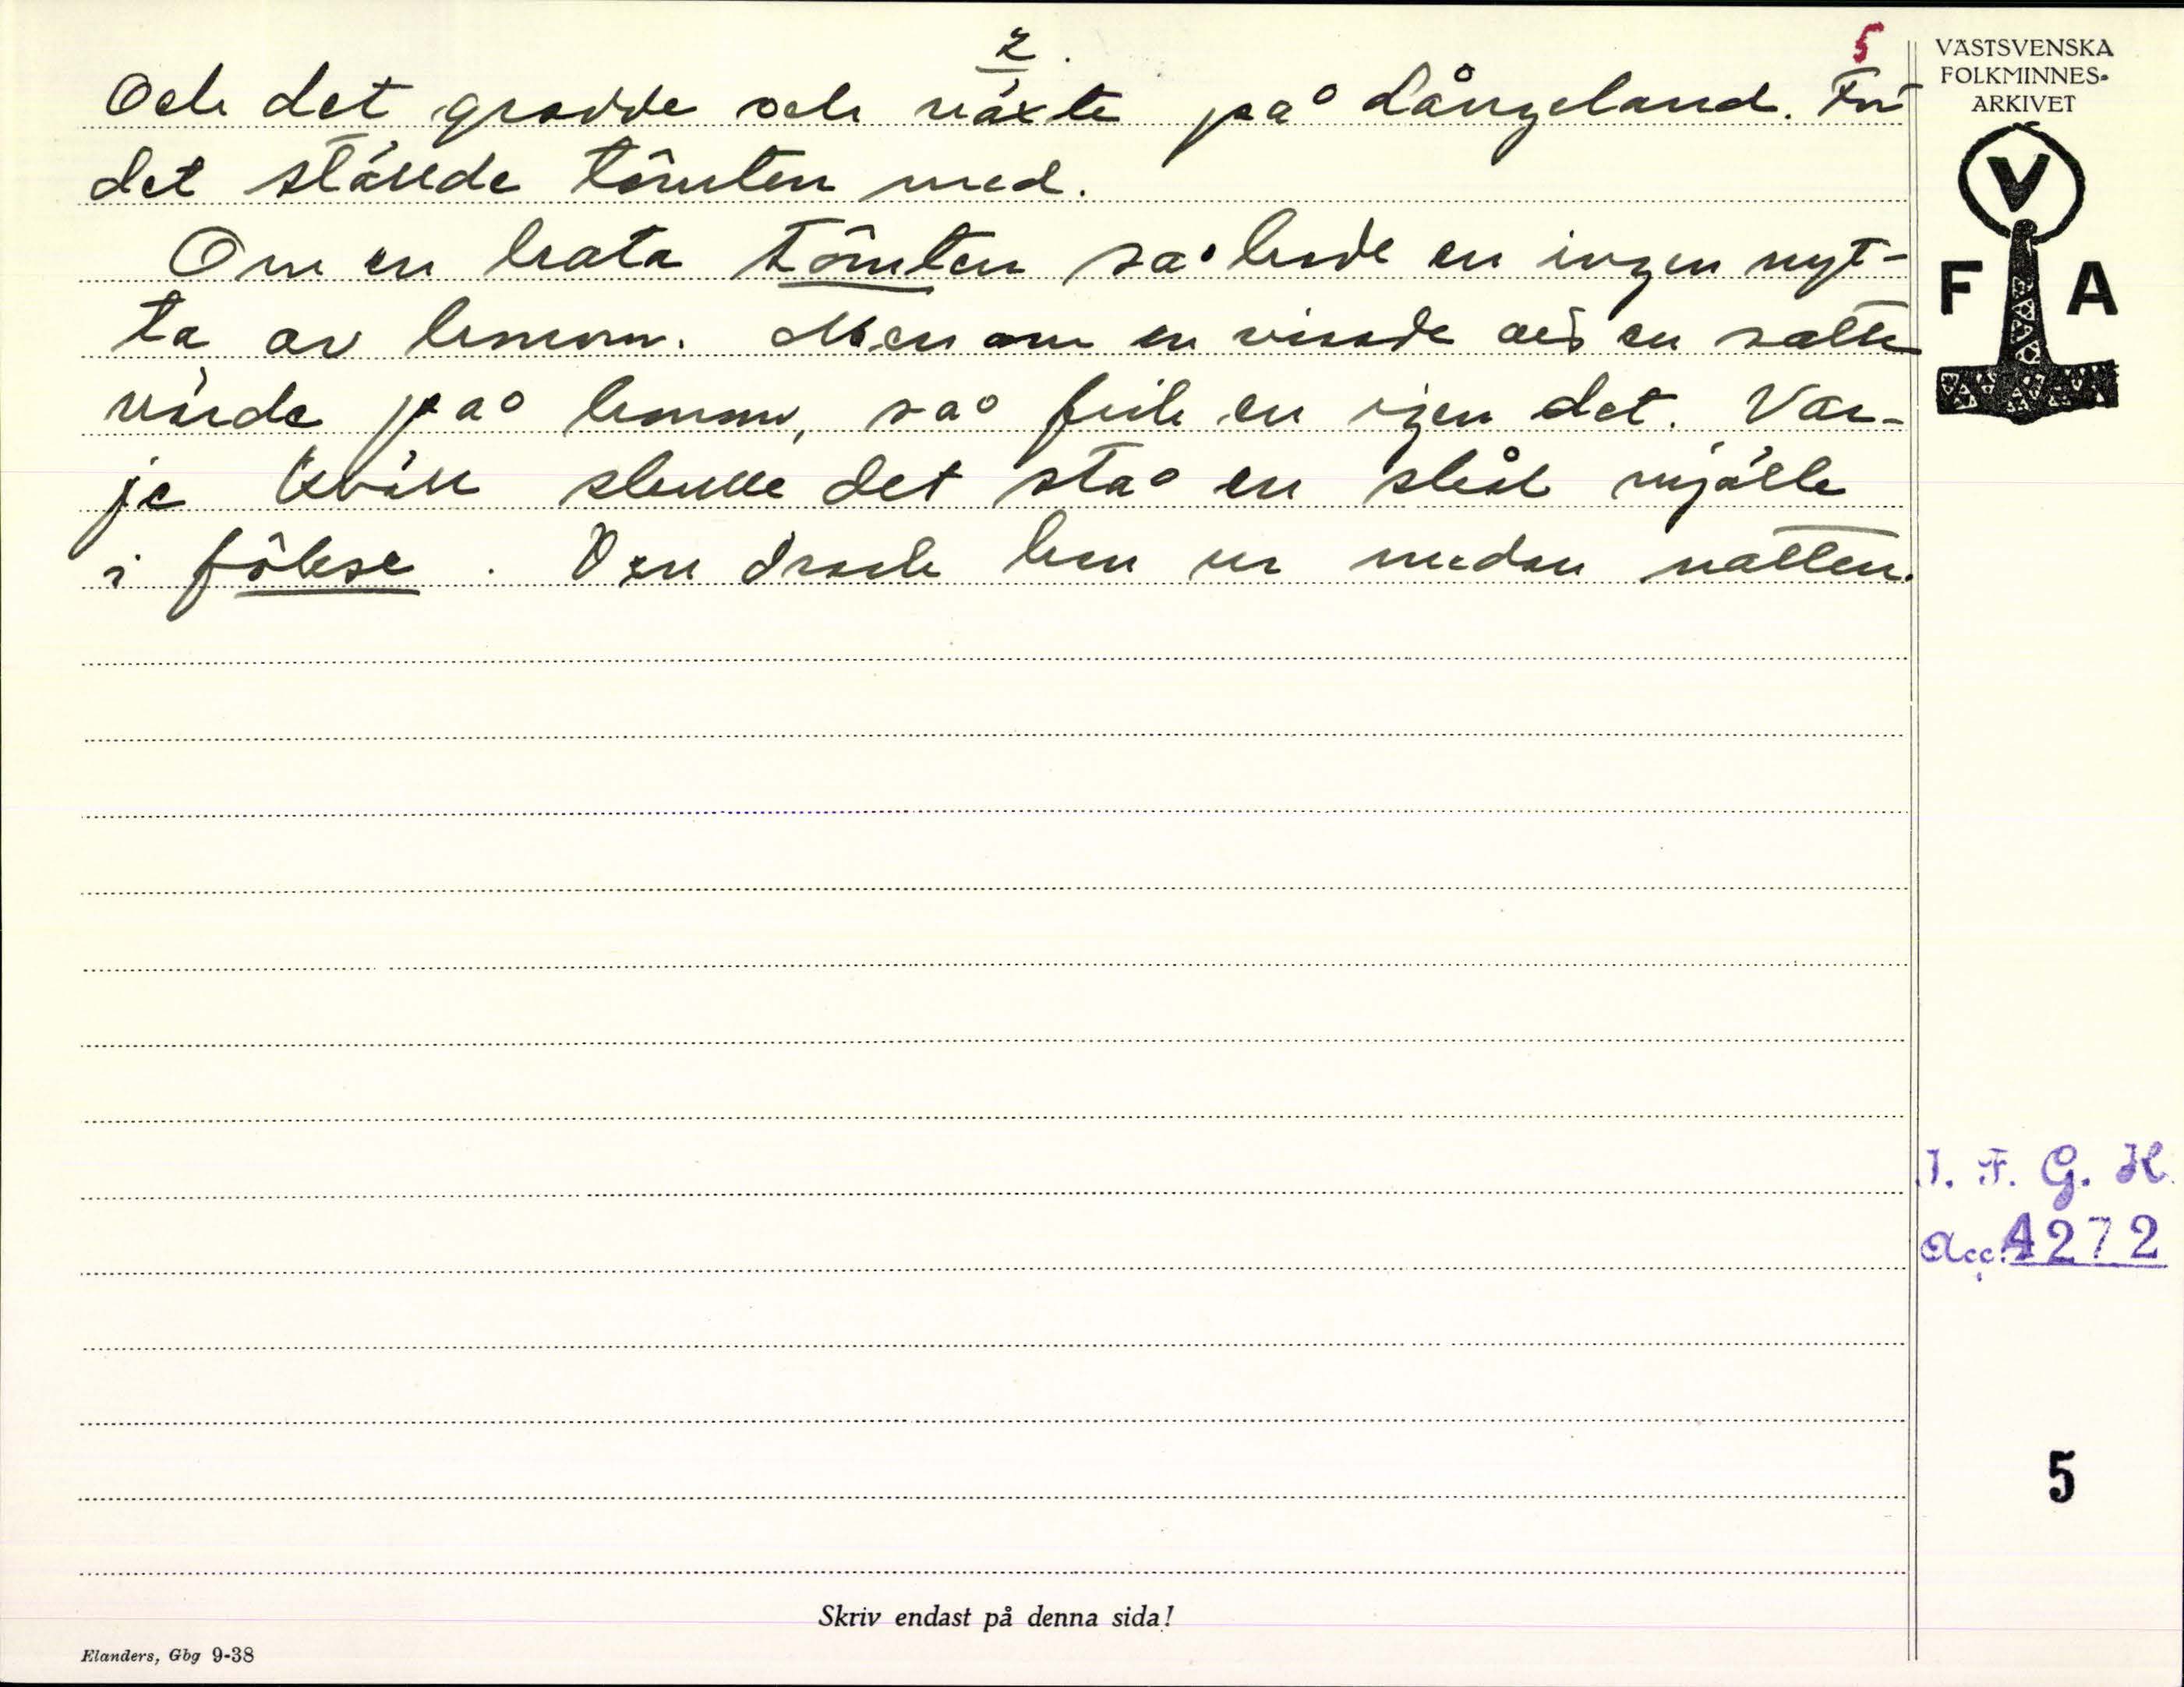 2.
5
Och det grodde och växte på Långeland. För
det ställde tômten med.
Om en hata tômten så hade en ingen nyt-
ta av honom. Men om en visade att en satte
värde på honom, så fick en igen det. Var-
je kväll skulle det stå en skål mjölk
i fôkse. Den drack han ur under natten.
VÄSTSVENSKA
FOLKMINNES-
ARKIVET
V
F A
I. F. G. H.
Acc. 4272
5
Skriv endast på denna sida!
Elanders, Gbg 9-38